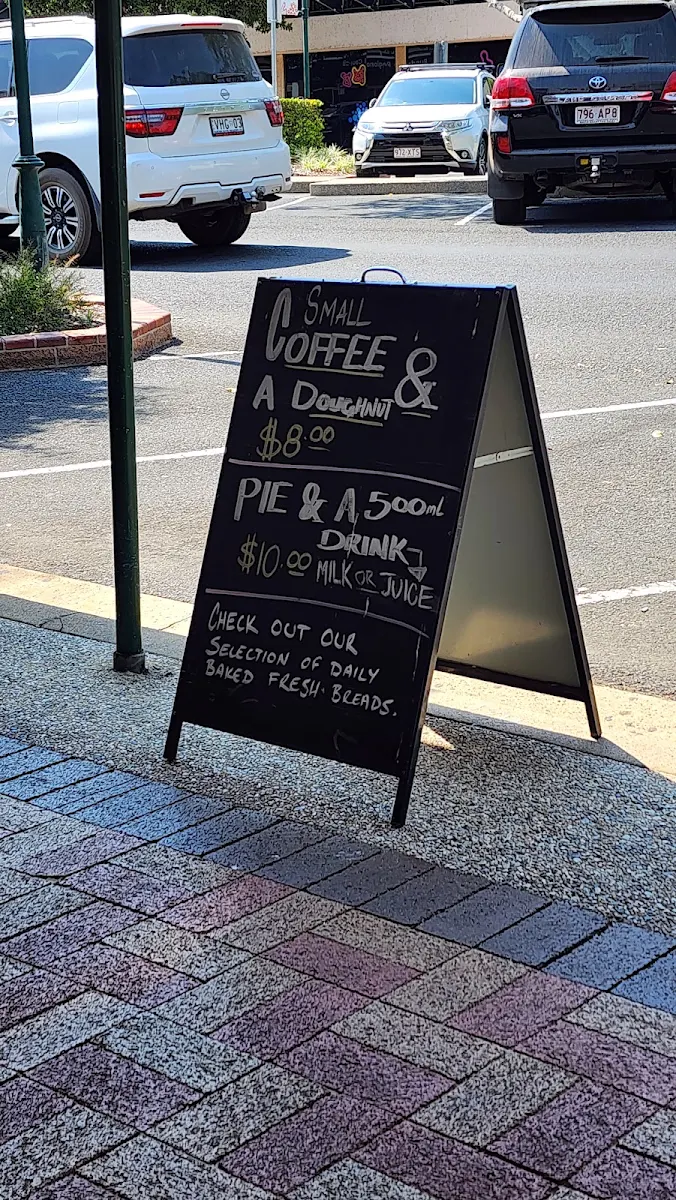 SMALL
COFFEE &
A DOUGHNUT
$8.00
PIE & A 500mL
DRINK
$10.00 MILK OR JUICE
CHECK OUT OUR
SELECTION OF DAILY
BAKED FRESH BREADS.
796 AP8